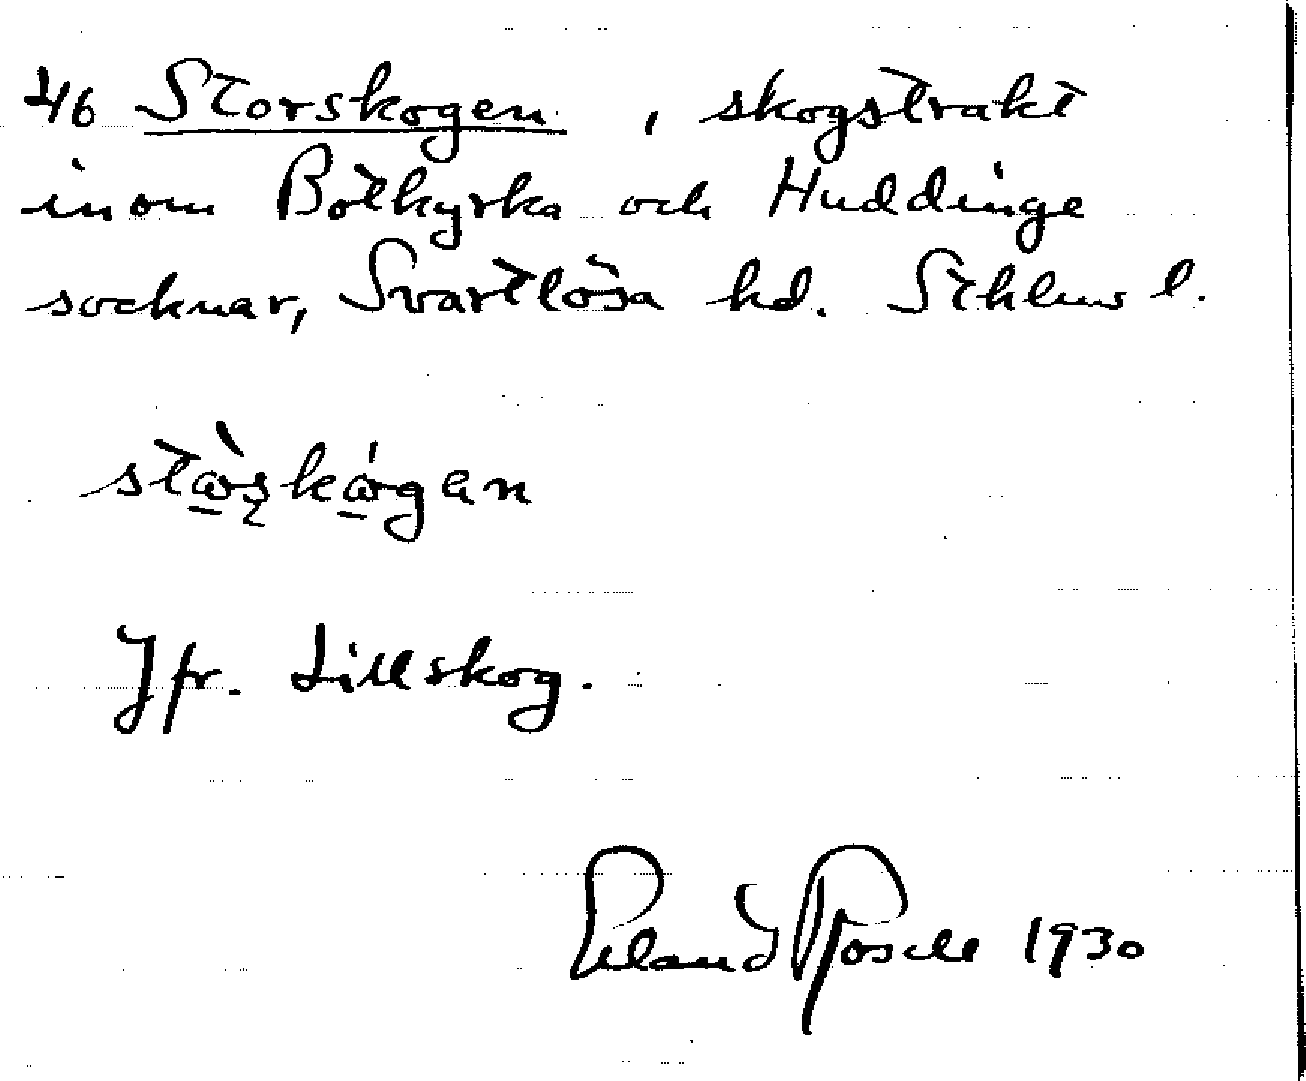 46 Storskogen, skogstrakt
inom Botkyrka och Huddinge
socknar, Svartlösa hd. Sthlms l.
Jfr. Lillskog.
Erland Rosell 1930